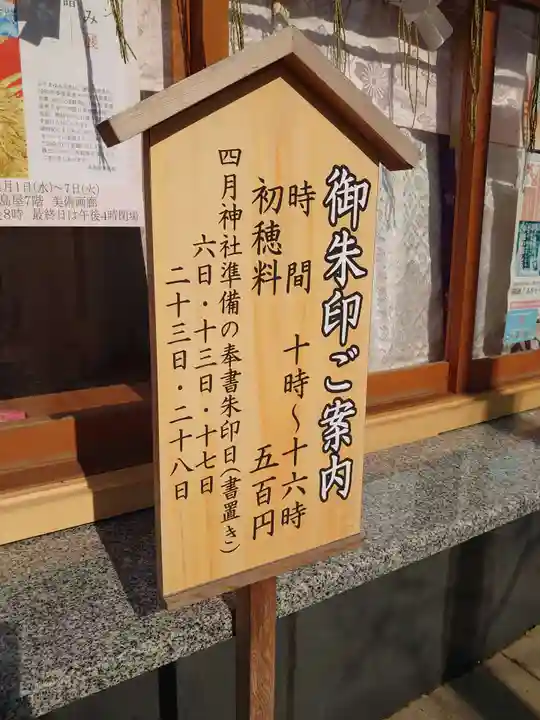 御朱印ご案内
時間 十時～十六時
初穂料 五百円
四月神社準備の奉書朱印日(書置き)
六日・十三日・十七日
二十三日・二十八日
月1日(水)～7日(火)
島屋7階 美術画廊
8時 最終日は午後4時閉場